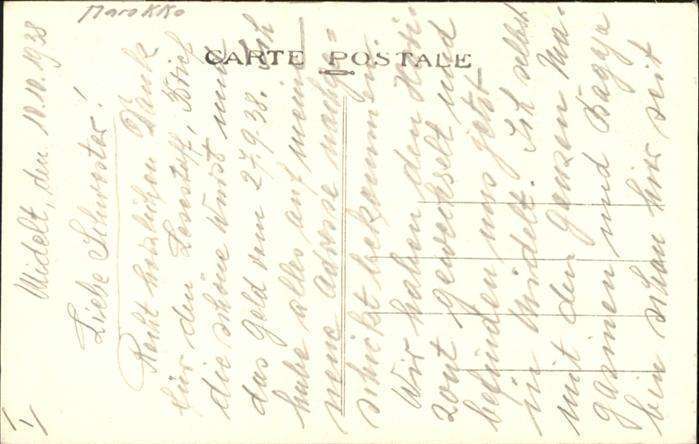 Marokko
CARTE POSTALE
Midelt, den 10.10.1938
Liebe Schwester!
Recht herzlichen Dank
für den Lesestoff, Brief
die schöne Wurst und
das Geld vom 27.9.38. Ich
habe alles auf meine
neue Adresse nachge-
schickt bekommen.
Wir haben den Hori-
zont gewechselt und
befinden uns jetzt
in Midelt. Ich selbst
mit den ganzen Ma-
gasinen und Bagage
bin schon hier seit
1/